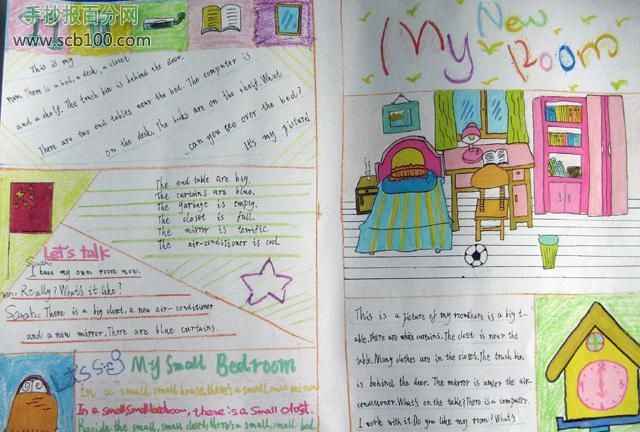 手抄报百分网
www.scb100.com
This is my
room. There is a bed, a desk, a closet
and a shelf. The trash bin is behind the door.
There are two end tables near the bed. The computer is
on the desk. The books are on the shelf. What
can you see over the bed?
It's my picture
The end table are big.
The curtains are blue.
The garbage is empty.
The closet is full.
The mirror is terrific.
The air-conditioner is cool.
Let's talk
Sarah:
I have my own room now.
Really? What's it like?
Sarah: There is a big closet, a new air-conditioner
and a new mirror. There are blue curtains.
Let's sing
My Small Bedroom
In a small, small house, there's a small, small bedroom
In a small, small bedroom, there is a small closet.
Beside the small, small closet, there's a small, small bed.
My New
Room
This is a picture of my room. There is a big t-
able. there are white curtains. The closet is near the
table. Many clothes are in the closet. The trash bin
is behind the door. The mirror is under the air-
conditioner. What's on the table? There is a computer.
I work with it. Do you like my room? What's